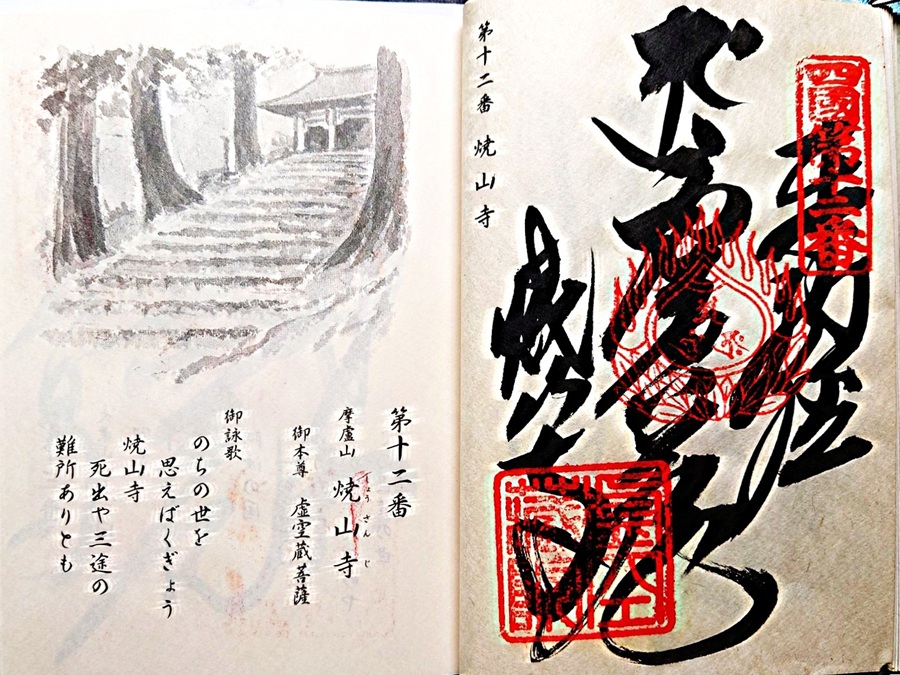 四國第十二番
焼山寺
第十二番 焼山寺
第十二番
摩廬山 焼山寺
しょうさんじ
御本尊 虚空蔵菩薩
御詠歌
のちの世を
思えばくぎょう
焼山寺
死出や三途の
難所ありとも